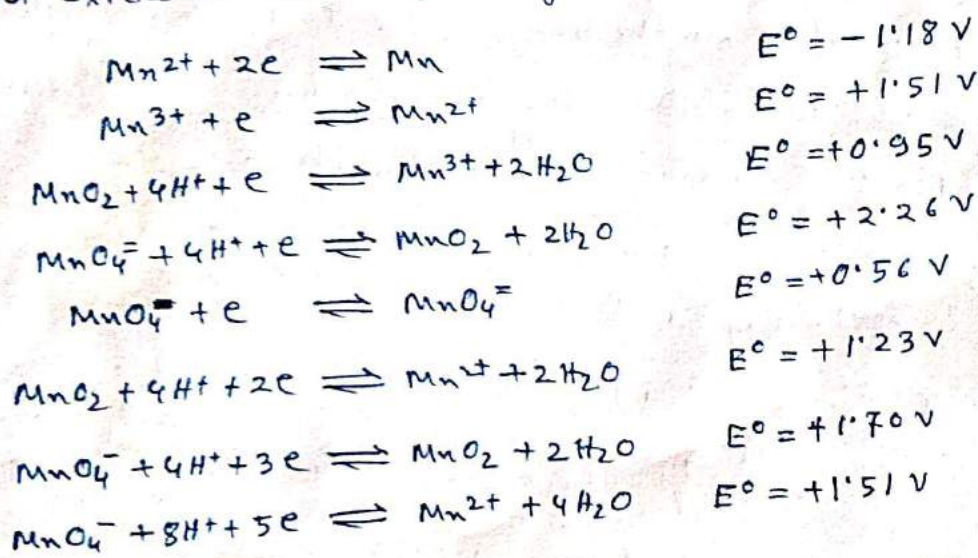 Mn²⁺ + 2e ⇌ Mn E⁰ = - 1·18 V
Mn³⁺ + e ⇌ Mn²⁺ E⁰ = +1·51 V
MnO₂ + 4H⁺ + e ⇌ Mn³⁺ + 2H₂O E⁰ = +0·95 V
MnO₄⁼ + 4H⁺ + e ⇌ MnO₂ + 2H₂O E⁰ = +2·26 V
MnO₄⁻ + e ⇌ MnO₄⁼ E⁰ = +0·56 V
MnO₂ + 4H⁺ + 2e ⇌ Mn²⁺ + 2H₂O E⁰ = +1·23 V
MnO₄⁻ + 4H⁺ + 3e ⇌ MnO₂ + 2H₂O E⁰ = +1·70 V
MnO₄⁻ + 8H⁺ + 5e ⇌ Mn²⁺ + 4H₂O E⁰ = +1·51 V